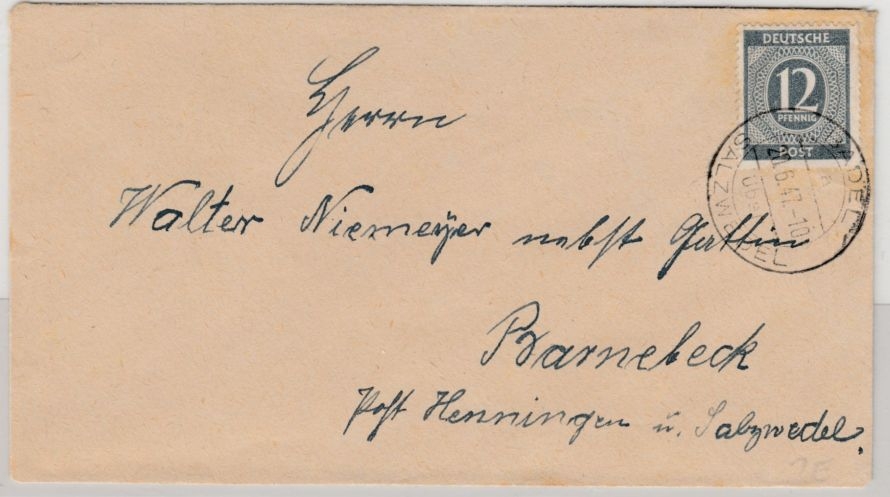 DEUTSCHE
12
PFENNIG
POST
SALZWEDEL
über
.6.47.-10
Herrn
Walter Niemeyer nebst Gattin
Barnebeck
Post Henningen u. Salzwedel.